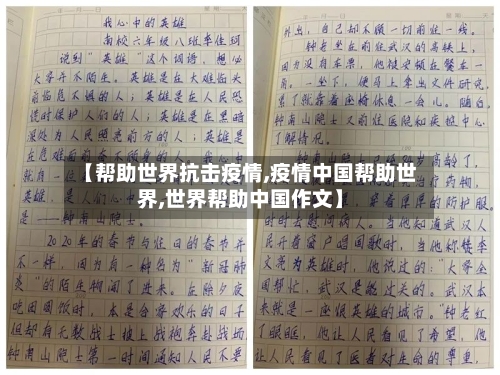 我心中的英雄
南校六年级八班李佳珂
说到“英雄”这个词语，想必
大家并不陌生。英雄是在大难临头
前临危不惧的人；英雄是在人民恐
慌时保护人们的人；英雄是在黑暗
深处为人民照亮前方的人；英雄是
在危难面前奋不顾身的人。
就是——钟南山院士。
2020年的春节与往日的春节并
不一样，因为有一种名为“新冠肺
炎”的陌生物闯了进来。在除夕夜
吃团圆饭时，本是合家欢乐的日子
但却有无数战士披上战袍奔赴战场
钟南山院士第一时间通知人民不要
外出，自己却不顾一切前往一线。
钟老坐在前往武汉的高铁上，
因为没有车票，他被安顿在餐车一
角。一坐下，便马上拿出文件研究，
累了就靠着座椅休息一会儿。随后，
钟南山院士又前往医院和疾控中心
了解情况。
【帮助世界抗击疫情,疫情中国帮助世
界,世界帮助中国作文】
时去慰问病人。当他知道武汉人
民开着窗户唱国歌时，当他称赞李
文亮为英雄时，他说过的：“大家全
国帮忙，武汉是能过关的。武汉本
来就是一座很英雄的城市。”钟老红
了眼眶，他让人民看见了希望，他
让人民看见了医者对生命的尊重，